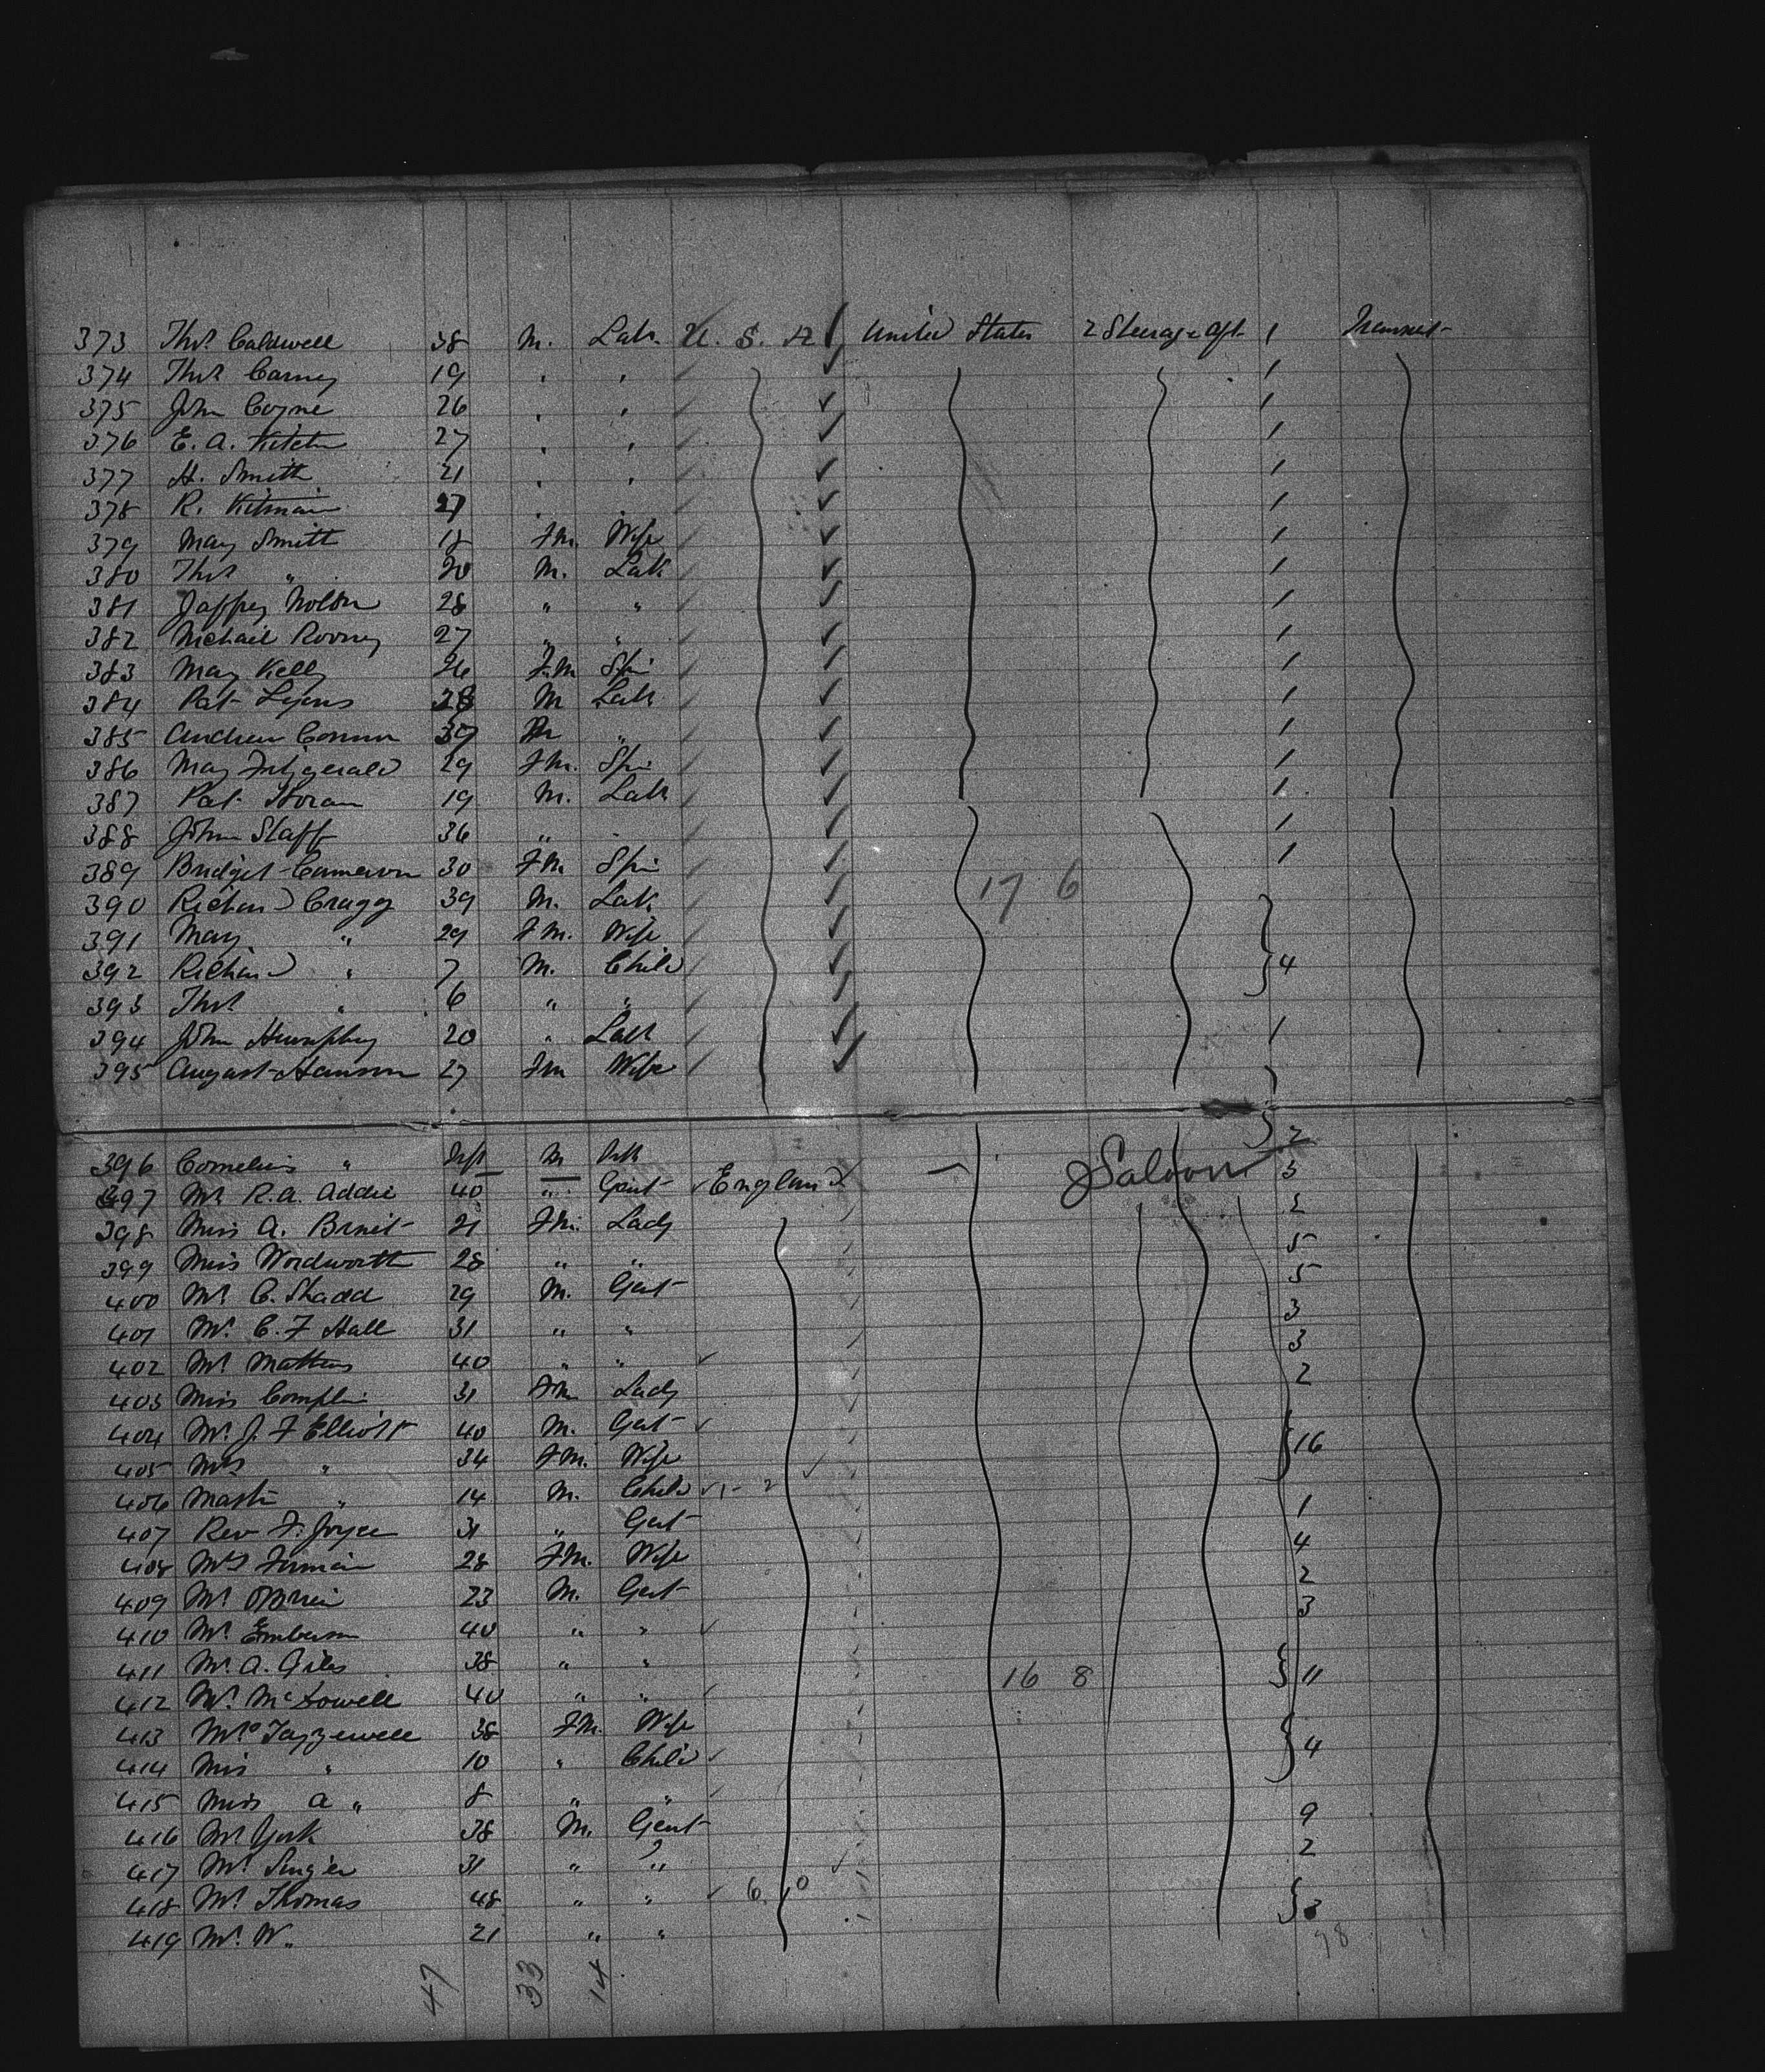 373 Thos. Caldwell 38 M. Lab. U. S. A United States 2 Steerage Aft 1 Transit
374 Thos Carney 19 " " 1
375 John Coyne 26 " " 1
376 E. A. 27 " " 1
377 H. Smith 21 " " 1
378 R. 27 " " 1
379 Mary Smith 18 Fm. Wife 1
380 Thos " 20 M. Lab 1
381 Jaffrey Nolan 28 " " 1
382 Michail Rooney 27 " " 1
383 Mary Kelly 26 Fm Spi 1
384 Pat Lyons 28 M Lab 1
385 Andrew Connor 39 M " 1
386 May Fitzgerald 29 Fm. Spi 1
387 Pat Horan 19 M. Lab 1
388 John Staff 36 " " 1
389 Bridget Cameron 30 Fm Spi 1
390 Richard Cragg 39 M. Lab 17 6
391 May " 29 Fm. Wife
392 Richard " 7 M. Child 4
393 Thos " 6 " "
394 John Humphry 20 " Lab 1
395 August Hanson 27 Fm Wife
396 Cornelius " Inft M Inft 2
397 Mr R. A. Addie 40 " Gent England Saloon 3
398 Miss A. 21 Fm. Lady 2
399 Miss Wordworth 28 " " 5
400 Mr C. Shadd 29 M. Gent 5
401 Mr. C. F Hall 31 " " 3
402 Mr Mathews 40 " " 3
403 Miss Complin 31 Fm Lady 2
404 Mr. J. F Elliott 40 M. Gent
405 Mrs " 34 Fm. Wife 16
406 Mastr " 14 M. Child
407 Rev F. Joyce 31 " Gent 1
408 Mrs Firmain 28 Fm. Wife 4
409 Mr OBrien 23 M. Gent 2
410 Mr Emberson 40 " " 3
411 Mr. A. Giles 38 " " 16 8 11
412 Mr. McDowell 40 " "
413 Mrs Tazzewell 38 Fm. Wife
414 Miss " 10 " Child 4
415 Miss A " 8 " "
416 Mr York 38 M. Gent 9
417 Mr Singer 31 " " 2
418 Mr Thomas 48 " " 6 0 3
419 Mr. W. " 21 " " 98
47 33 14